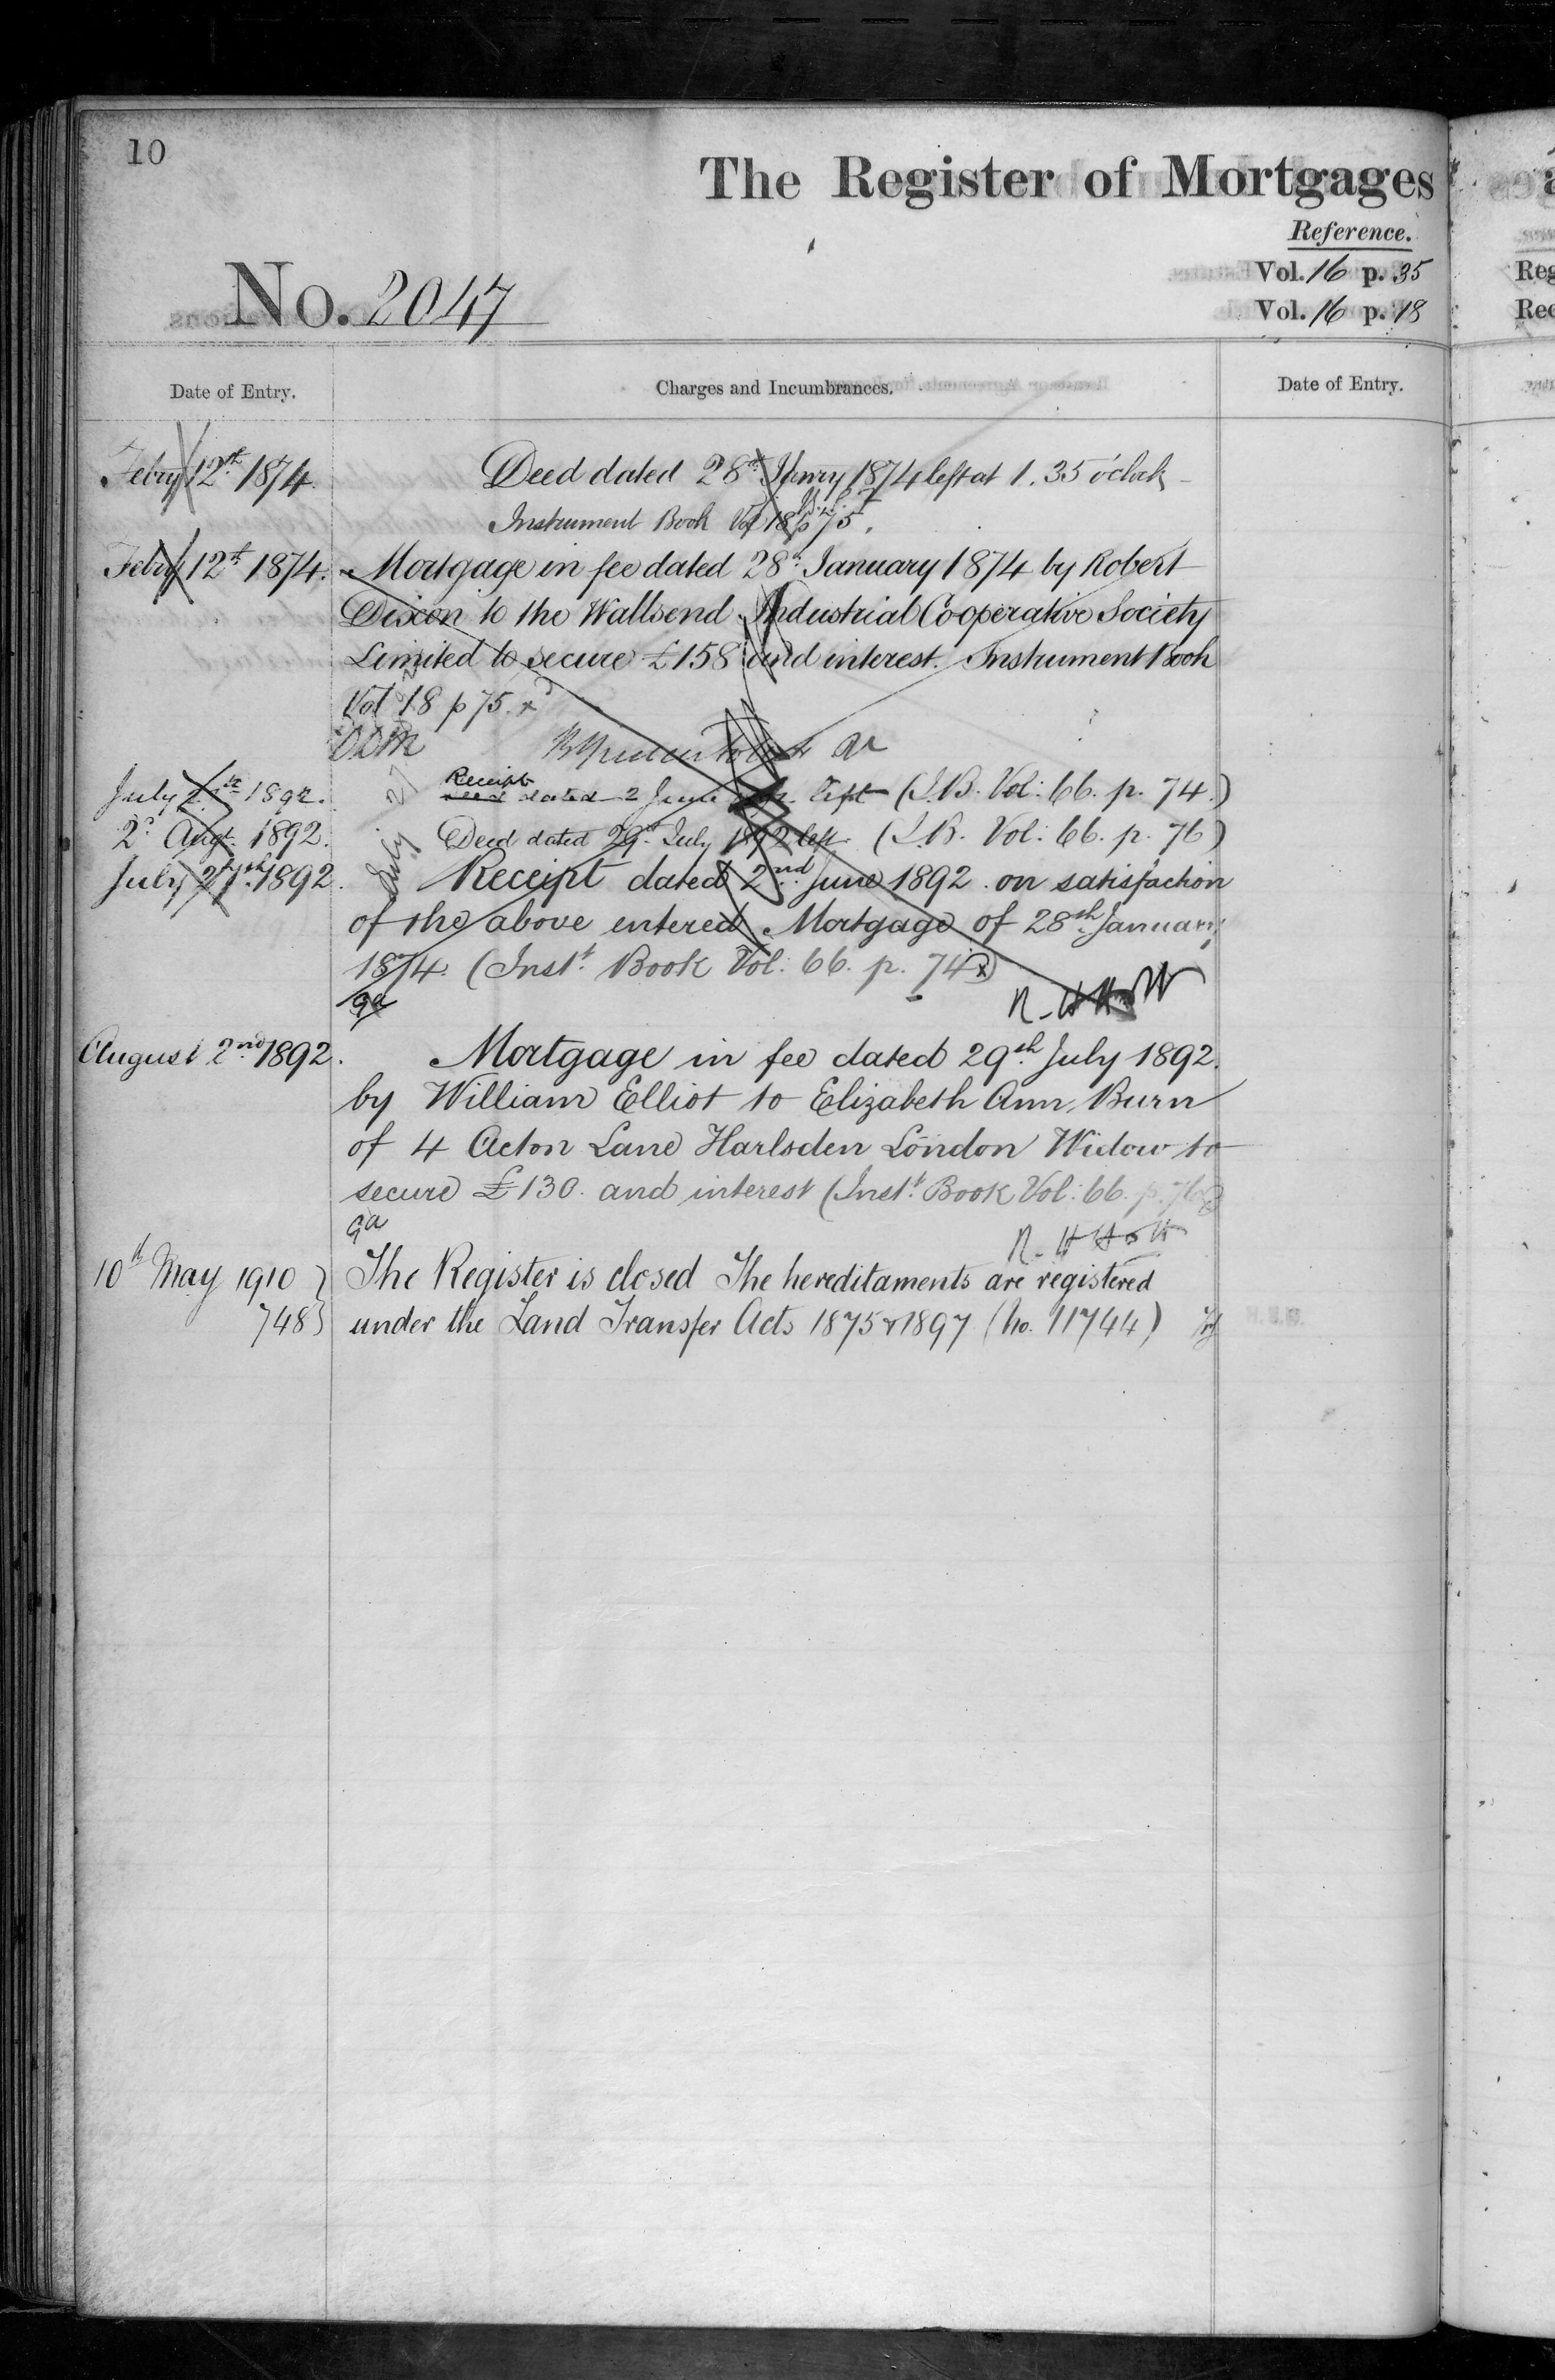 10
The Register of Mortgages
Reference.
Vol. 16 p. 35
Vol. 16 p. 18
No. 2047
Date of Entry. Charges and Incumbrances. Date of Entry.
Febry 12th 1874. Deed dated 28th Janry 1874 left at 1.35 o'clock
Instrument Book Vol 18 p 75.
Febry 12th 1874. Mortgage in fee dated 28th January 1874 by Robert
Dixon to the Wallsend Industrial Cooperative Society
Limited to secure £158 and interest. Instrument Book
Vol 18 p 75.
July 1892. Receipt dated 2 June left (I.B. Vol: 66. p. 74.)
2d Augt. 1892. Deed dated 29th July 1892 left (I.B. Vol: 66. p. 76)
July 27th 1892. Receipt dated 2nd June 1892 on satisfaction
of the above entered Mortgage of 28th January
1874. (Instt. Book Vol: 66. p. 74)
July 27
August 2nd 1892. Mortgage in fee dated 29th July 1892.
by William Elliot to Elizabeth Ann Burn
of 4 Acton Lane Harlsden London Widow to
secure £130. and interest (Instt. Book Vol: 66. p. 76)
10th May 1910 } The Register is closed The hereditaments are registered
748 } under the Land Transfer Acts 1875 & 1897 (No. 11744)
Reg
Rec